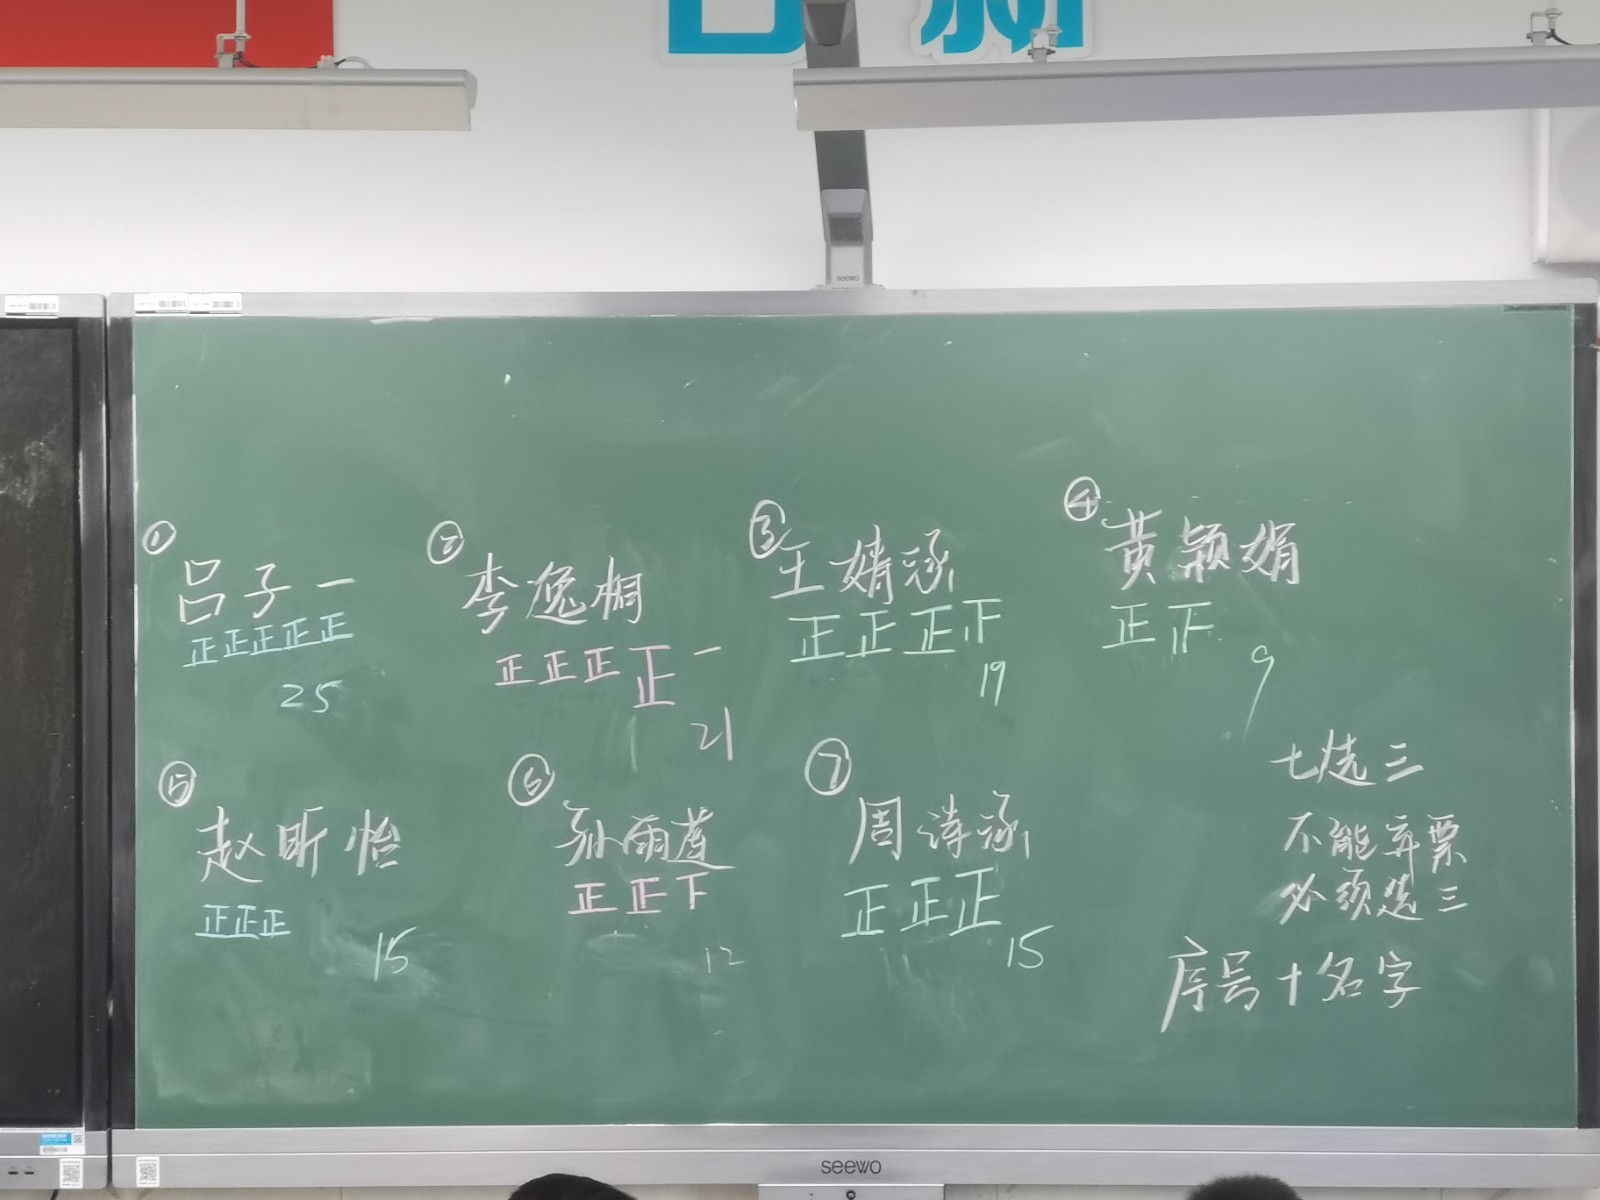 日新
seewo
① ② ③ ④
吕子一 李逸桐 王婧涵 黄颖娟
正正正正正 正正正正一
25 21 19 9
⑤ ⑥ ⑦
赵昕怡 孙雨莲 周诗涵
正正正 正正下 正正正
15 12 15
七选三
不能弃票
必须选三
序号+名字
seewo